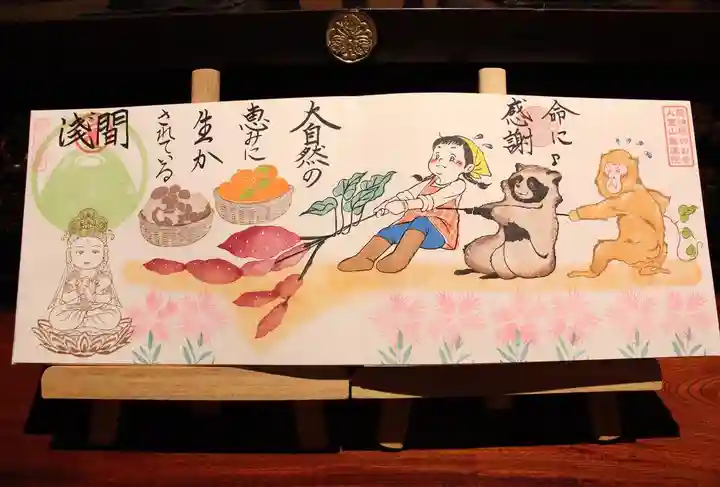 命に♪
感謝
大自然の
恵みに
生か
されている
浅間